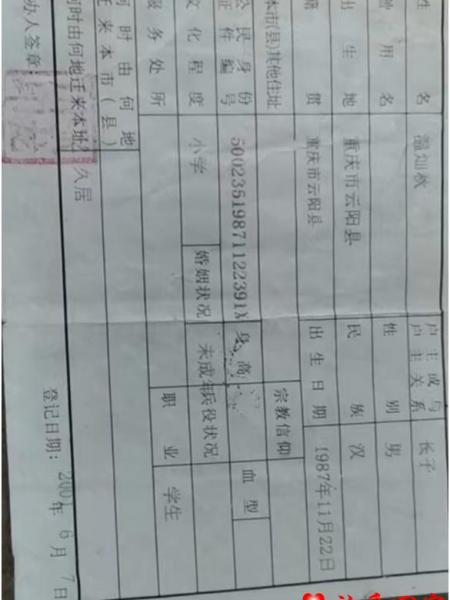 姓 名 温灿秋 户主或与户主关系 长子
曾 用 名 性 别 男
出 生 地 重庆市云阳县 民 族 汉
籍 贯 重庆市云阳县 出 生 日 期 1987年11月22日
本市(县)其他住址 宗教信仰
公民身份证件编号 50023519871122391X 身 高 血 型
文 化 程 度 小学 婚姻状况 未成年 兵役状况
服 务 处 所 职 业 学生
何时由何地迁来本市(县)
何时由何地迁来本址 久居
办人签章: 登记日期: 200 年 6 月 7 日